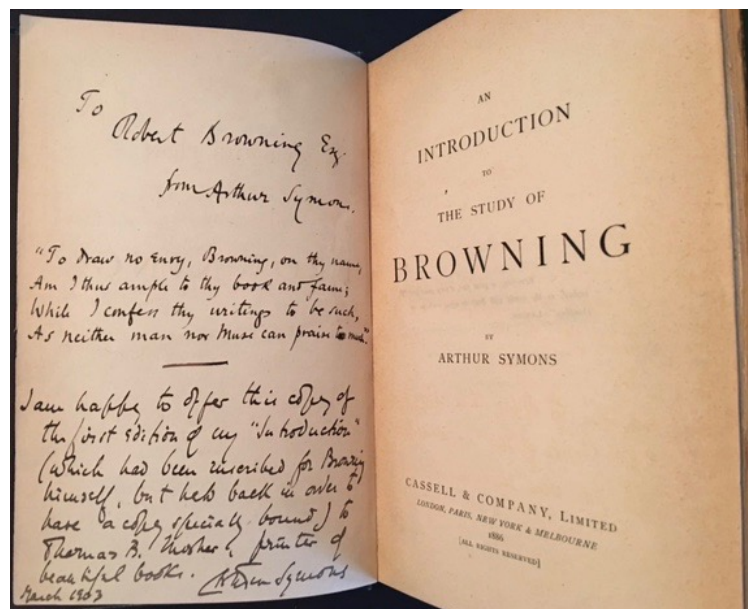 To
Robert Browning Esq.
from Arthur Symons.
"To draw no envy, Browning, on thy name,
Am I thus ample to thy book and fame;
While I confess thy writings to be such,
As neither man nor Muse can praise too much."
I am happy to offer this copy of
the first edition of my "Introduction"
(which had been inscribed for Browning
himself, but held back in order to
have a copy specially bound) to
Thomas B. Mosher, printer of
beautiful books. Arthur Symons
March 1903
AN
INTRODUCTION
TO
THE STUDY OF
BROWNING
BY
ARTHUR SYMONS
CASSELL & COMPANY, LIMITED
LONDON, PARIS, NEW YORK & MELBOURNE
1886
[ALL RIGHTS RESERVED]